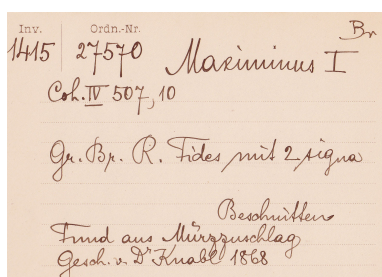 Inv. Ordn.-Nr. Br
1415 27570 Maximinus I
Coh. IV 507, 10
Gr. Br. R. Fides mit 2 signa
Beschnitten
Fund aus Mürzzuschlag
Gesch. v. Dr Knabl 1868